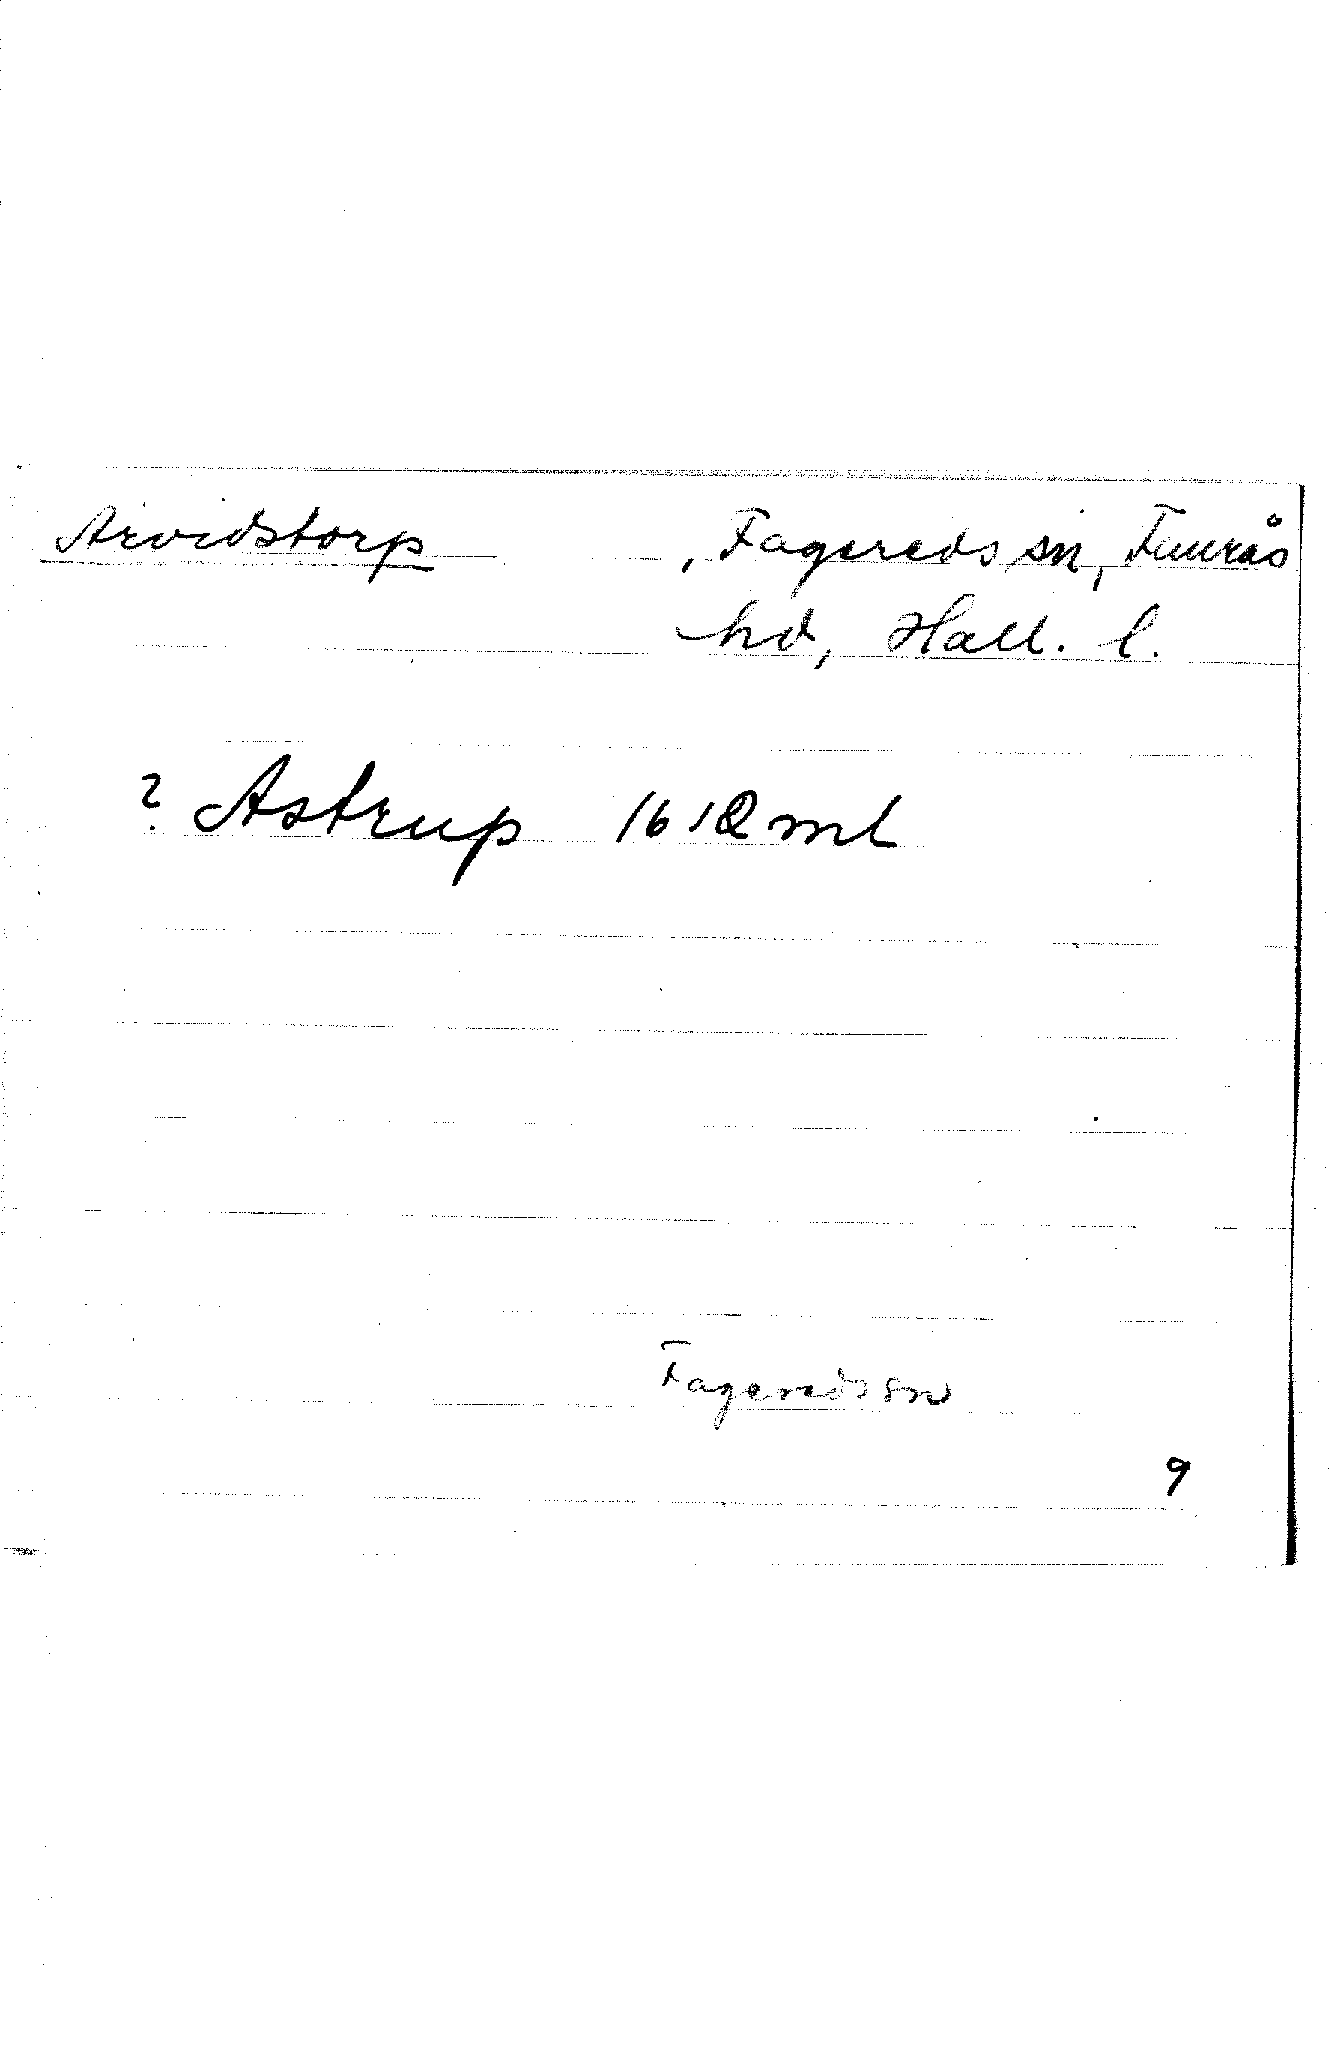 Arvidstorp , Fagereds sn, Faurås
hd, Hall. l.
? Astrup 1612 ml
Fagereds sn
9